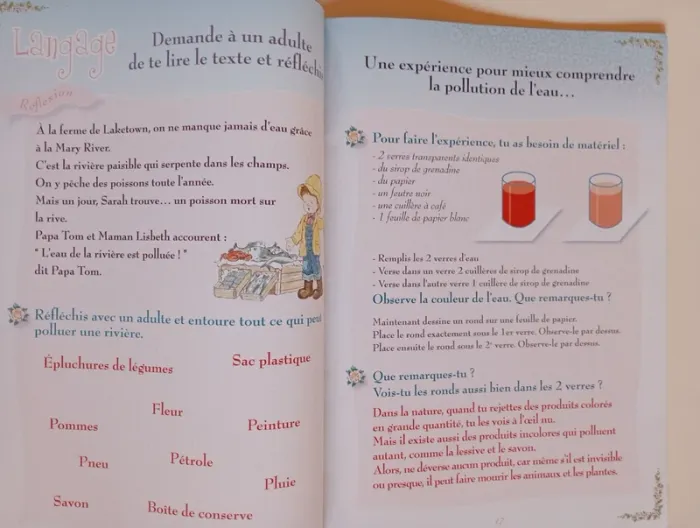 Langage
Demande à un adulte
de te lire le texte et réfléchis
Réflexion
À la ferme de Laketown, on ne manque jamais d'eau grâce
à la Mary River.
C'est la rivière paisible qui serpente dans les champs.
On y pêche des poissons toute l'année.
Mais un jour, Sarah trouve... un poisson mort sur
la rive.
Papa Tom et Maman Lisbeth accourent :
" L'eau de la rivière est polluée ! "
dit Papa Tom.
Réfléchis avec un adulte et entoure tout ce qui peut
polluer une rivière.
Épluchures de légumes
Sac plastique
Fleur
Pommes
Peinture
Pneu
Pétrole
Pluie
Savon
Boite de conserve
Une expérience pour mieux comprendre
la pollution de l'eau...
Pour faire l'expérience, tu as besoin de matériel :
- 2 verres transparents identiques
- du sirop de grenadine
- du papier
- un feutre noir
- une cuillère à café
- 1 feuille de papier blanc
- Remplis les 2 verres d'eau
- Verse dans un verre 2 cuillères de sirop de grenadine
- Verse dans l'autre verre 1 cuillère de sirop de grenadine
Observe la couleur de l'eau. Que remarques-tu ?
Maintenant dessine un rond sur une feuille de papier.
Place le rond exactement sous le 1er verre. Observe-le par dessus.
Place ensuite le rond sous le 2e verre. Observe-le par dessus.
Que remarques-tu ?
Vois-tu les ronds aussi bien dans les 2 verres ?
Dans la nature, quand tu rejettes des produits colorés
en grande quantité, tu les vois à l'œil nu.
Mais il existe aussi des produits incolores qui polluent
autant, comme la lessive et le savon.
Alors, ne déverse aucun produit, car même s'il est invisible
ou presque, il peut faire mourir les animaux et les plantes.
17